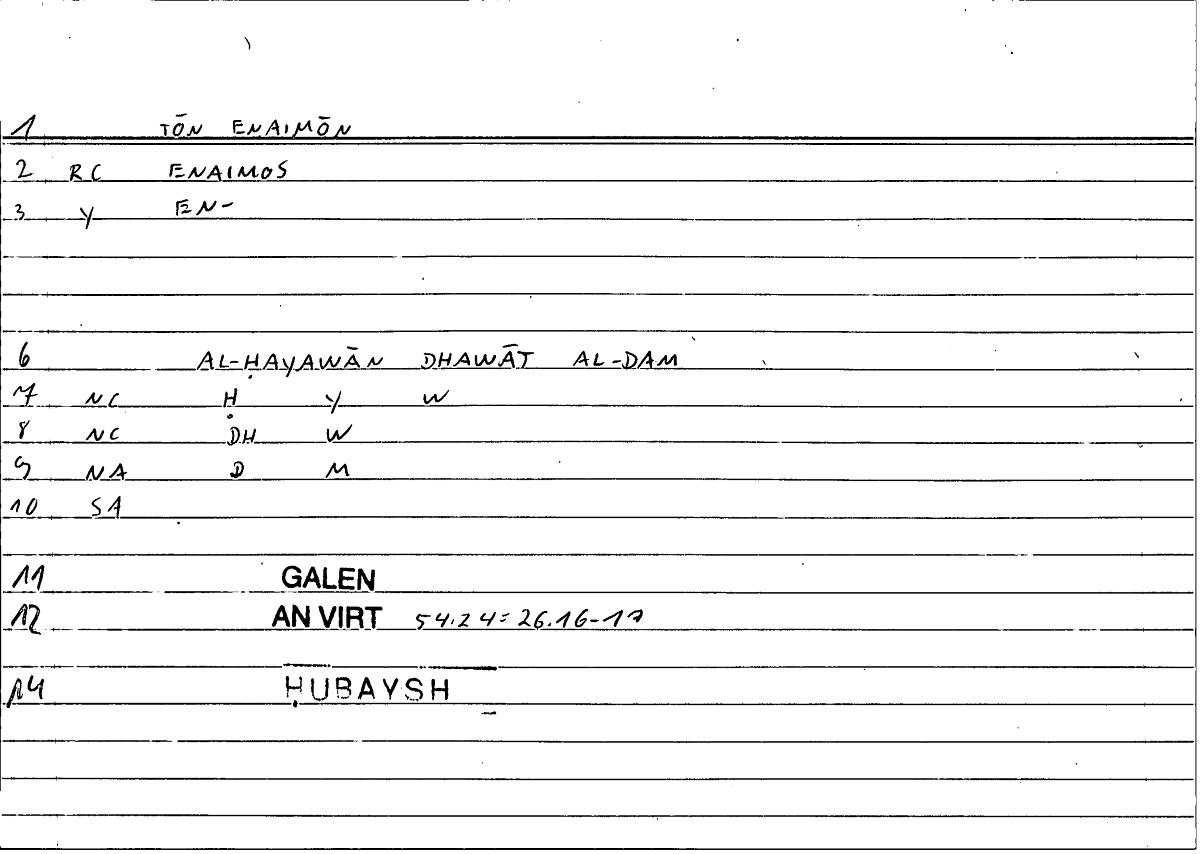 1 TŌN ENAIMŌN
2 RC ENAIMOS
3 Y EN-
6 AL-ḤAYAWĀN DHAWĀT AL-DAM
7 NC Ḥ Y W
8 NC DH W
9 NA D M
10 SA
11 GALEN
12 AN VIRT 54.24=26.16-17
14 ḤUBAYSH